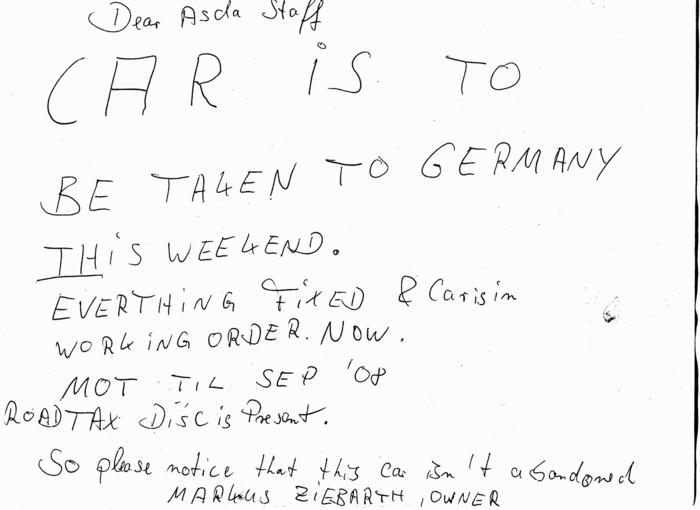 Dear Asda Staff
CAR iS TO
BE TAKEN TO GERMANY
THiS WEEKEND.
EVERTHiNG FiXED & Car is in
WORKiNG ORDER. NOW.
MOT TiL SEP '08
ROADTAX DiSC is Present.
So please notice that this car isn't abandoned
MARKUS ZiEBARTH, OWNER